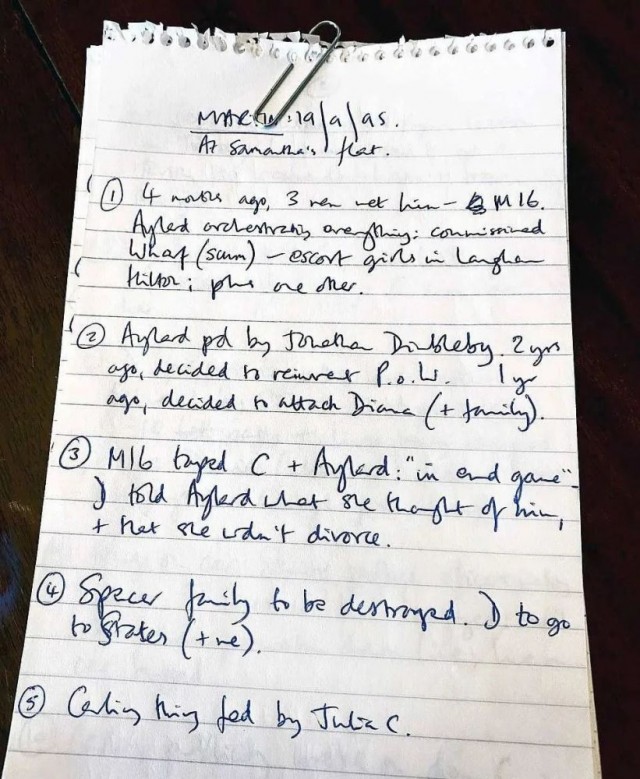 MARTIN: 19/9/95.
At Samantha's flat.
① 4 months ago, 3 men met him - MI6.
Aylard orchestrating everything: commissioned
Wharf (scum) - escort girls in Langham
Hilton; plus one other.
② Aylard pd by Jonathan Dimbleby. 2 yrs
ago, decided to reinvent P.o.W. 1 yr
ago, decided to attack Diana (+ family).
③ MI6 taped C + Aylard: "in end game"-
D told Aylard what she thought of him,
+ that she wdn't divorce.
④ Spencer family to be destroyed. D to go
to States (+ve).
⑤ Carling thing fed by Julia C.